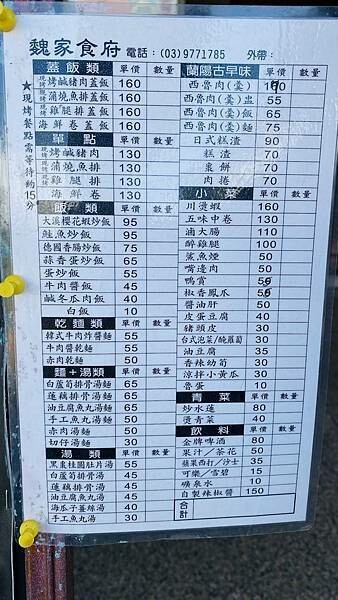 魏家食府 電話：(03)9771785 外帶：
★現烤餐點需等待約15分
蓋飯類 單價 數量
現烤 烤鹹豬肉蓋飯 160
蒲燒魚排蓋飯 160
雞腿排蓋飯 160
海鮮卷蓋飯 160
單點 單價 數量
烤鹹豬肉 130
蒲燒魚排 130
雞腿排 130
海鮮卷 130
飯類 單價 數量
大溪櫻花蝦炒飯 95
鮭魚炒飯 95
德國香腸炒飯 75
蒜香蛋炒飯 65
蛋炒飯 55
牛肉醬飯 45
鹹冬瓜肉飯 40
白飯 10
乾麵類 單價 數量
韓式牛肉炸醬麵 55
牛肉醬乾麵 55
赤肉乾麵 50
麵+湯類 單價 數量
白蘆筍排骨湯麵 65
蓮藕排骨湯麵 65
油豆腐魚丸湯麵 65
手工魚丸湯麵 50
赤肉湯麵 50
切仔湯麵 30
湯類 單價 數量
黑棗桂圓肚片湯 55
白蘆筍排骨湯 45
蓮藕排骨湯 45
油豆腐魚丸湯 45
海瓜子薑絲湯 40
手工魚丸湯 30
蘭陽古早味 單價 數量
西魯肉(羹)
西魯肉(羹)盅 55
西魯肉(羹)飯 65
西魯肉(羹)麵 75
日式糕渣 90
糕渣 70
棗餅 70
肉捲 70
小菜 單價 數量
川燙蝦 160
五味中卷 130
滷大腸 110
醉雞腿 100
鯊魚煙 50
嘴邊肉 50
鴨賞
椒香鳳爪
醬油肝 50
皮蛋豆腐 40
豬頭皮 30
台式泡菜/醃蘿蔔 30
油豆腐 35
香辣幼筍 30
涼拌小黃瓜 30
魯蛋 10
青菜 單價 數量
炒水蓮 80
燙青菜 40
飲料 單價 數量
金牌啤酒 80
果汁/茶花 50
蘋果西打/沙士 35
可樂/雪碧 15
礦泉水 10
自製辣椒醬 150
合計